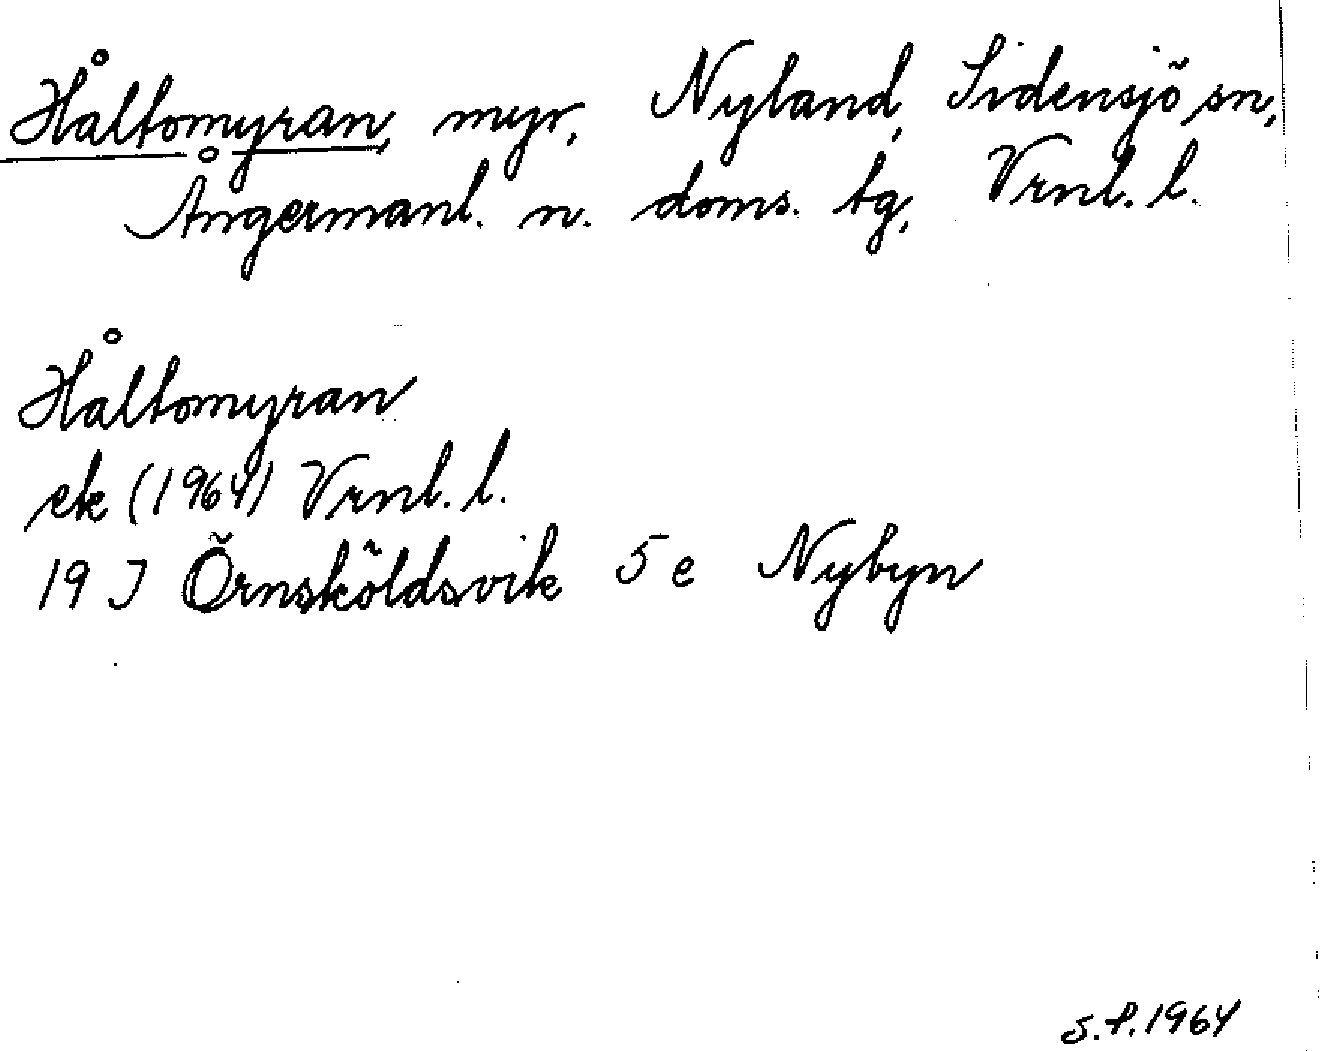 Håltomyran, myr, Nyland, Sidensjö sn,
Ångermanl. n. doms. tg, Vrnl. l.
Håltomyran
ek (1964) Vrnl. l.
19 J Örnsköldsvik 5 e Nybyn
S.P.1964